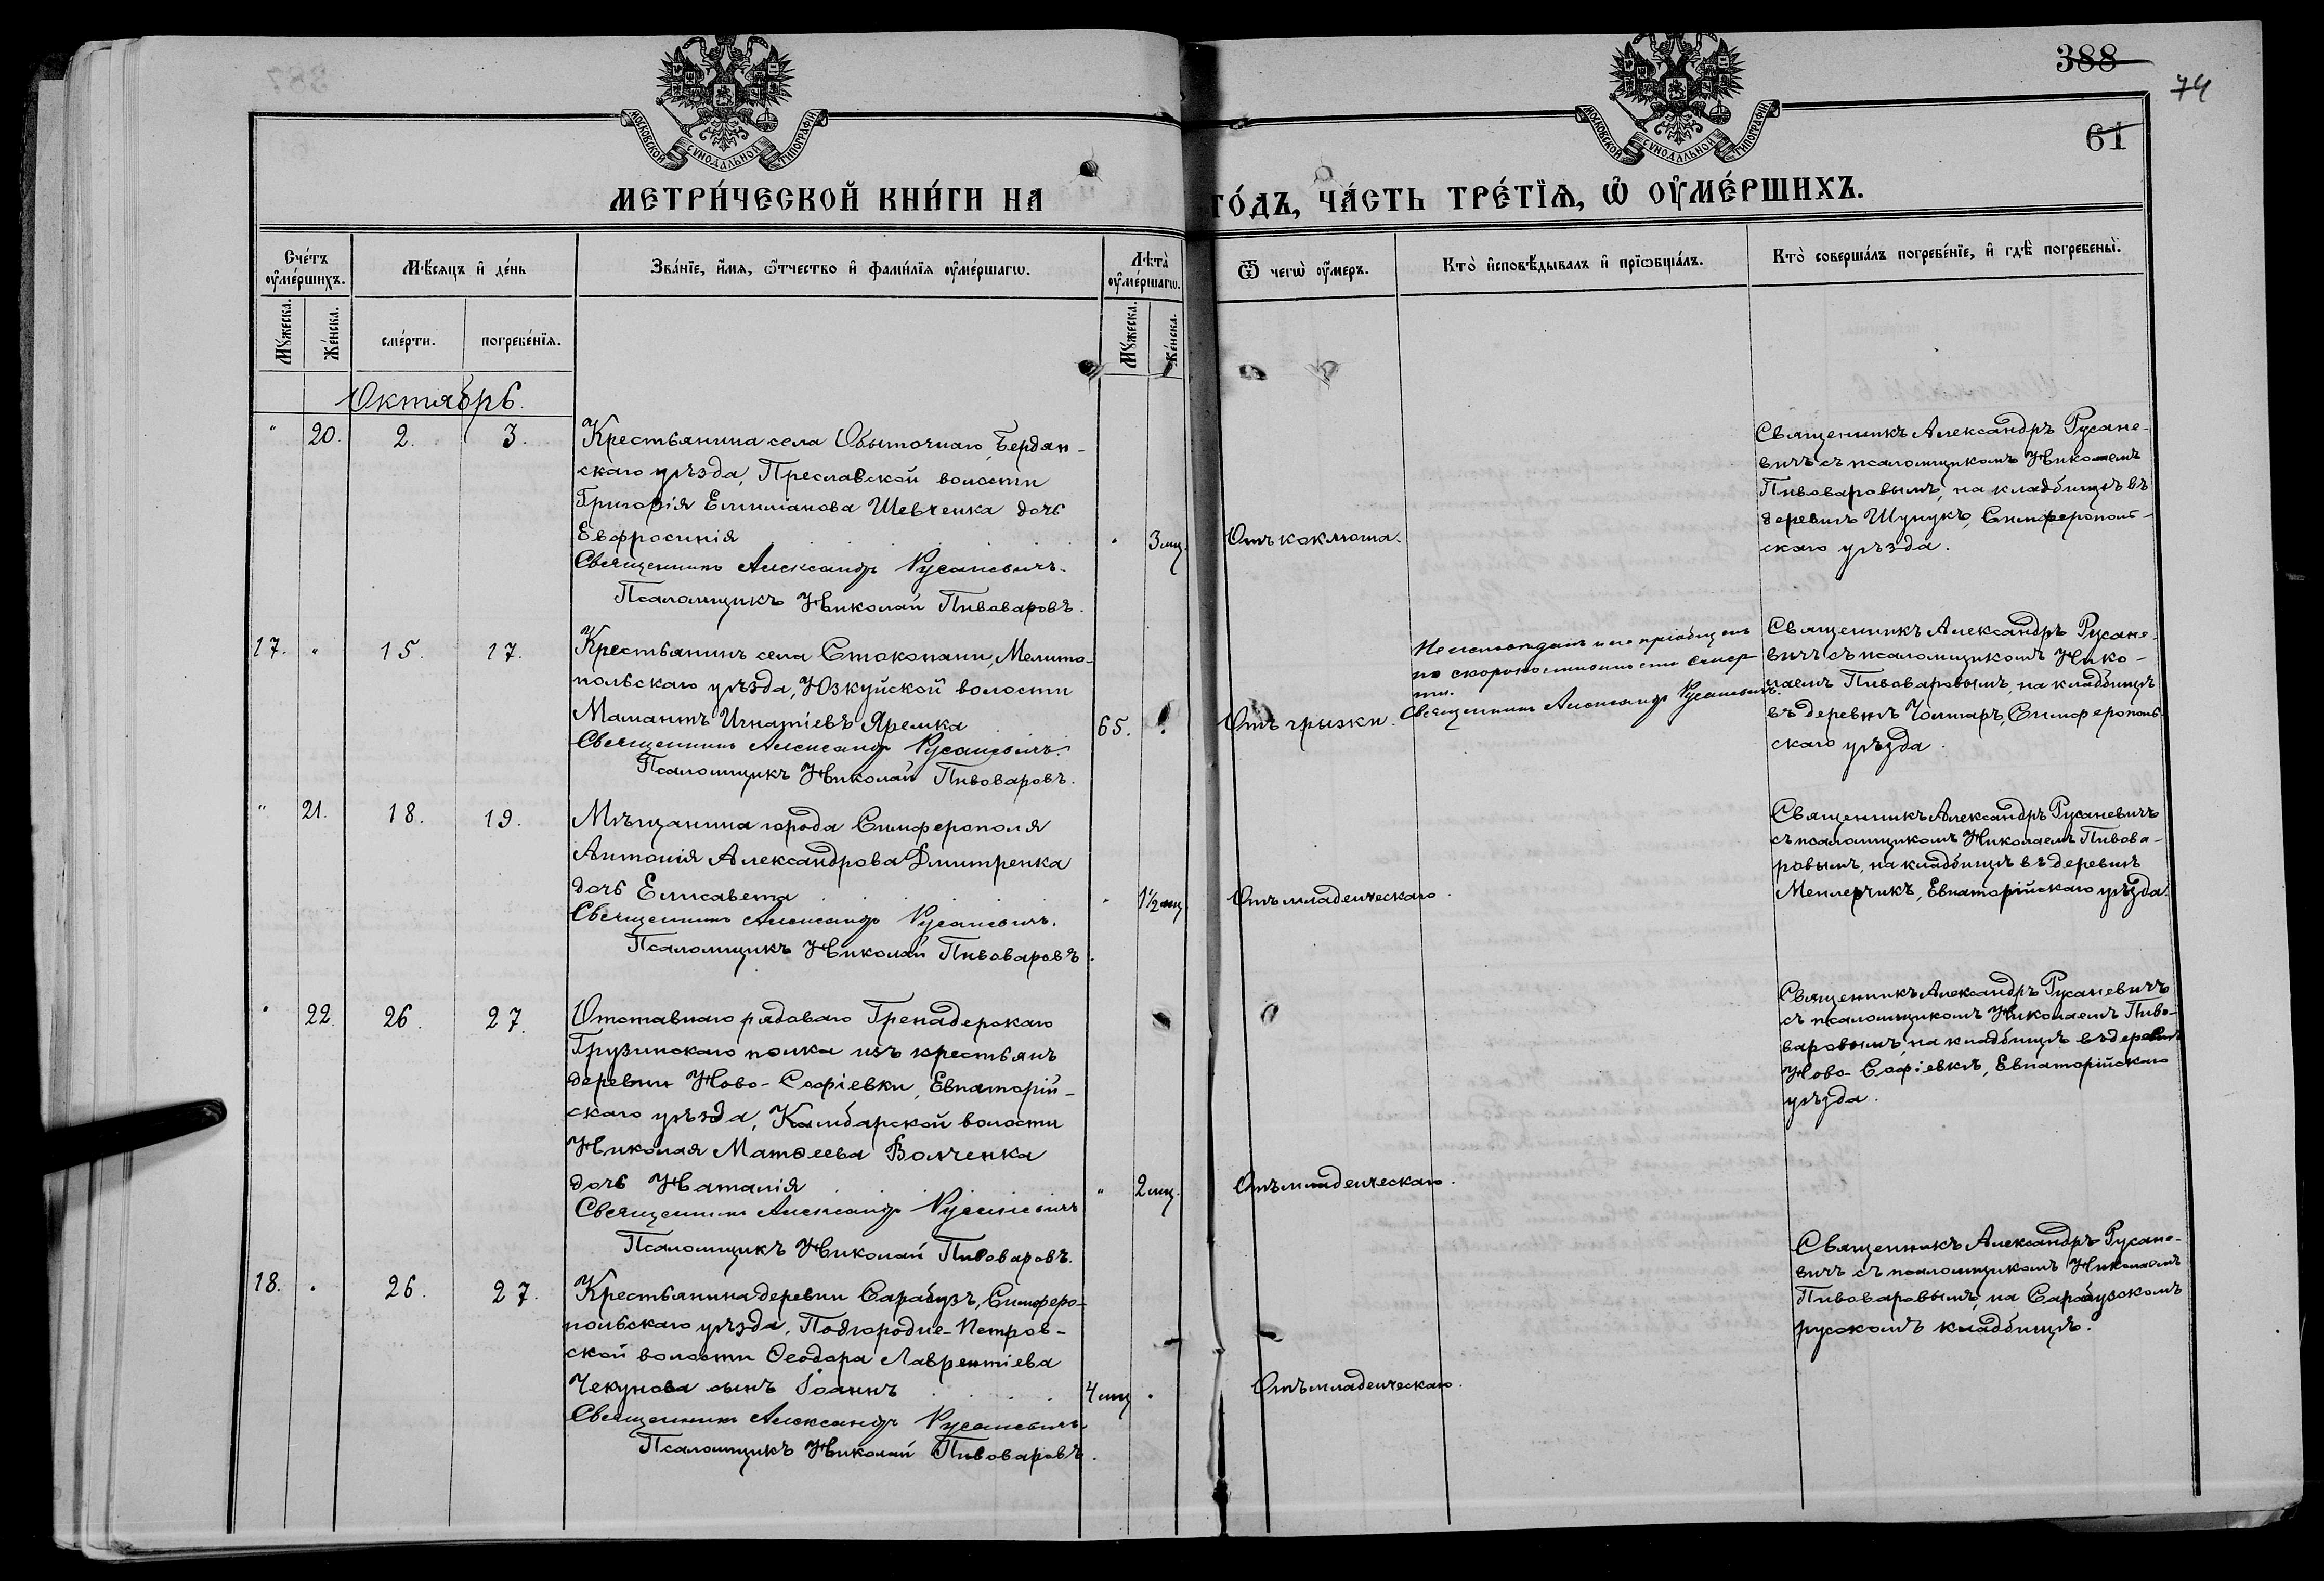 388
74
61
МОСКОВСКОЙ СѴНОДАЛЬНОЙ ТИПОГРАФІИ
МОСКОВСКОЙ СѴНОДАЛЬНОЙ ТИПОГРАФІИ
МЕТРИ́ЧЕСКОЙ КНИ́ГИ НА ГО́ДЪ, ЧА́СТЬ ТРЕ́ТІѦ, Ѡ҆ ОУ҆МЕ́РШИХЪ.
Сче́тъ оу҆ме́ршихъ.
Мѣ́сяцъ и҆ де́нь
Зва́нїе, и҆́мя, ѻ҆́тчество и҆ фами́лїя оу҆ме́ршагѡ.
Лѣта̀ оу҆ме́ршагѡ.
Ѿ чегѡ̀ оу҆́меръ.
Кто̀ и҆сповѣ́дывалъ и҆ прїѡбща́лъ.
Кто̀ соверша́лъ погребе́нїе, и҆ гдѣ̀ погребены̀.
Мꙋ́жеска.
Же́нска.
сме́рти.
погребе́нїя.
Мꙋ́жеска.
Же́нска.
Октябрь.
" 20. 2. 3.
Крестьянина села Обыточнаго, Бердян-
скаго уѣзда, Преславской волости
Григорія Емиліанова Шевченка дочь
Евфросинія
Священникъ Александръ Русаневичъ.
Псаломщикъ Николай Пивоваровъ.
" 3 мц.
Отъ коклюша.
Священникъ Александръ Русане-
вичъ съ псаломщикомъ Николаемъ
Пивоваровымъ, на кладбищѣ въ
деревнѣ Шунукъ, Симферополь-
скаго уѣзда.
17. " 15. 17.
Крестьянинъ села Стокопани, Мелито-
польскаго уѣзда, Юзкуйской волости
Мамантъ Игнатіевъ Яремка
Священникъ Александръ Русаневичъ.
Псаломщикъ Николай Пивоваровъ.
65.
Отъ грызи.
Не исповѣданъ и не пріобщенъ
по скоропостижности смер-
ти.
Священникъ Александръ Русаневичъ.
Священникъ Александръ Русане-
вичъ съ псаломщикомъ Нико-
лаемъ Пивоваровымъ, на кладбищѣ
въ деревнѣ Чонгаръ, Симферополь-
скаго уѣзда.
" 21. 18. 19.
Мѣщанина города Симферополя
Антонія Александрова Дмитренка
дочь Елисавета
Священникъ Александръ Русаневичъ.
Псаломщикъ Николай Пивоваровъ.
" 1½ мц
Отъ младенческаго.
Священникъ Александръ Русаневичъ
съ псаломщикомъ Николаемъ Пивова-
ровымъ, на кладбищѣ въ деревнѣ
Менлерчикъ, Евпаторійскаго уѣзда.
" 22. 26. 27.
Отставнаго рядоваго Гренадерскаго
Грузинскаго полка изъ крестьянъ
деревни Ново-Софіевки, Евпаторій-
скаго уѣзда, Камбарской волости
Николая Матѳеева Волченка
дочь Наталія
Священникъ Александръ Русаневичъ
Псаломщикъ Николай Пивоваровъ.
" 2 мц.
Отъ младенческаго.
Священникъ Александръ Русаневичъ
съ псаломщикомъ Николаемъ Пиво-
варовымъ, на кладбищѣ въ деревнѣ
Ново-Софіевкѣ, Евпаторійскаго
уѣзда.
18. " 26. 27.
Крестьянина деревни Сарабузъ, Симферо-
польскаго уѣзда, Подгородне-Петров-
ской волости Ѳеодора Лаврентіева
Чекунова сынъ Іоаннъ
Священникъ Александръ Русаневичъ.
Псаломщикъ Николай Пивоваровъ.
4 мц "
Отъ младенческаго.
Священникъ Александръ Русане-
вичъ съ псаломщикомъ Николаемъ
Пивоваровымъ, на Сарабузскомъ
русскомъ кладбищѣ.